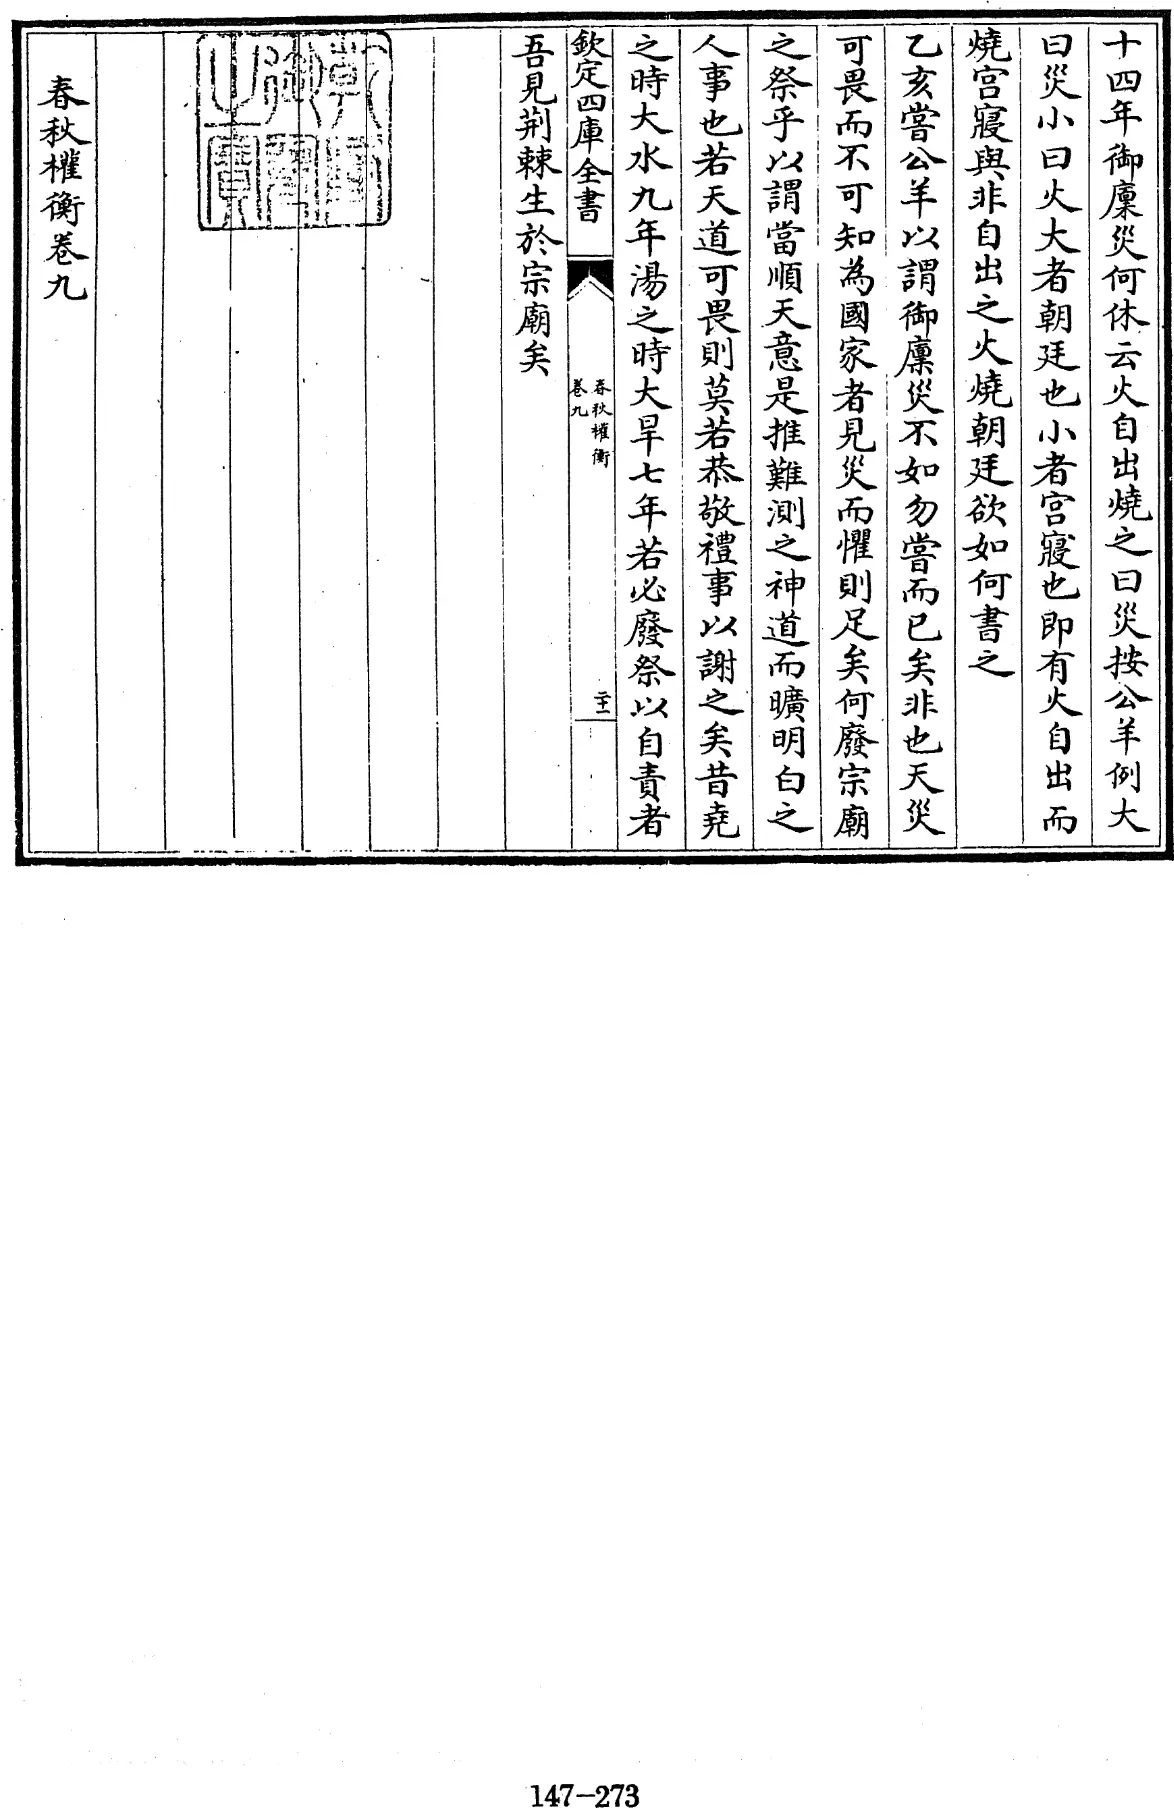 十四年御廩災何休云火自出燒之曰災按公羊例大
曰災小曰火大者朝廷也小者宫寢也即有火自出而
燒宫寢與非自出之火燒朝廷欲如何書之
乙亥嘗公羊以謂御廩災不如勿嘗而已矣非也天災
可畏而不可知為國家者見災而懼則足矣何廢宗廟
之祭乎以謂當順天意是推難測之神道而曠明白之
人事也若天道可畏則莫若恭敬禮事以謝之矣昔堯
之時大水九年湯之時大旱七年若必廢祭以自責者
欽定四庫全書
春秋權衡
卷九
吾見荆棘生於宗廟矣
春秋權衡卷九
147-273